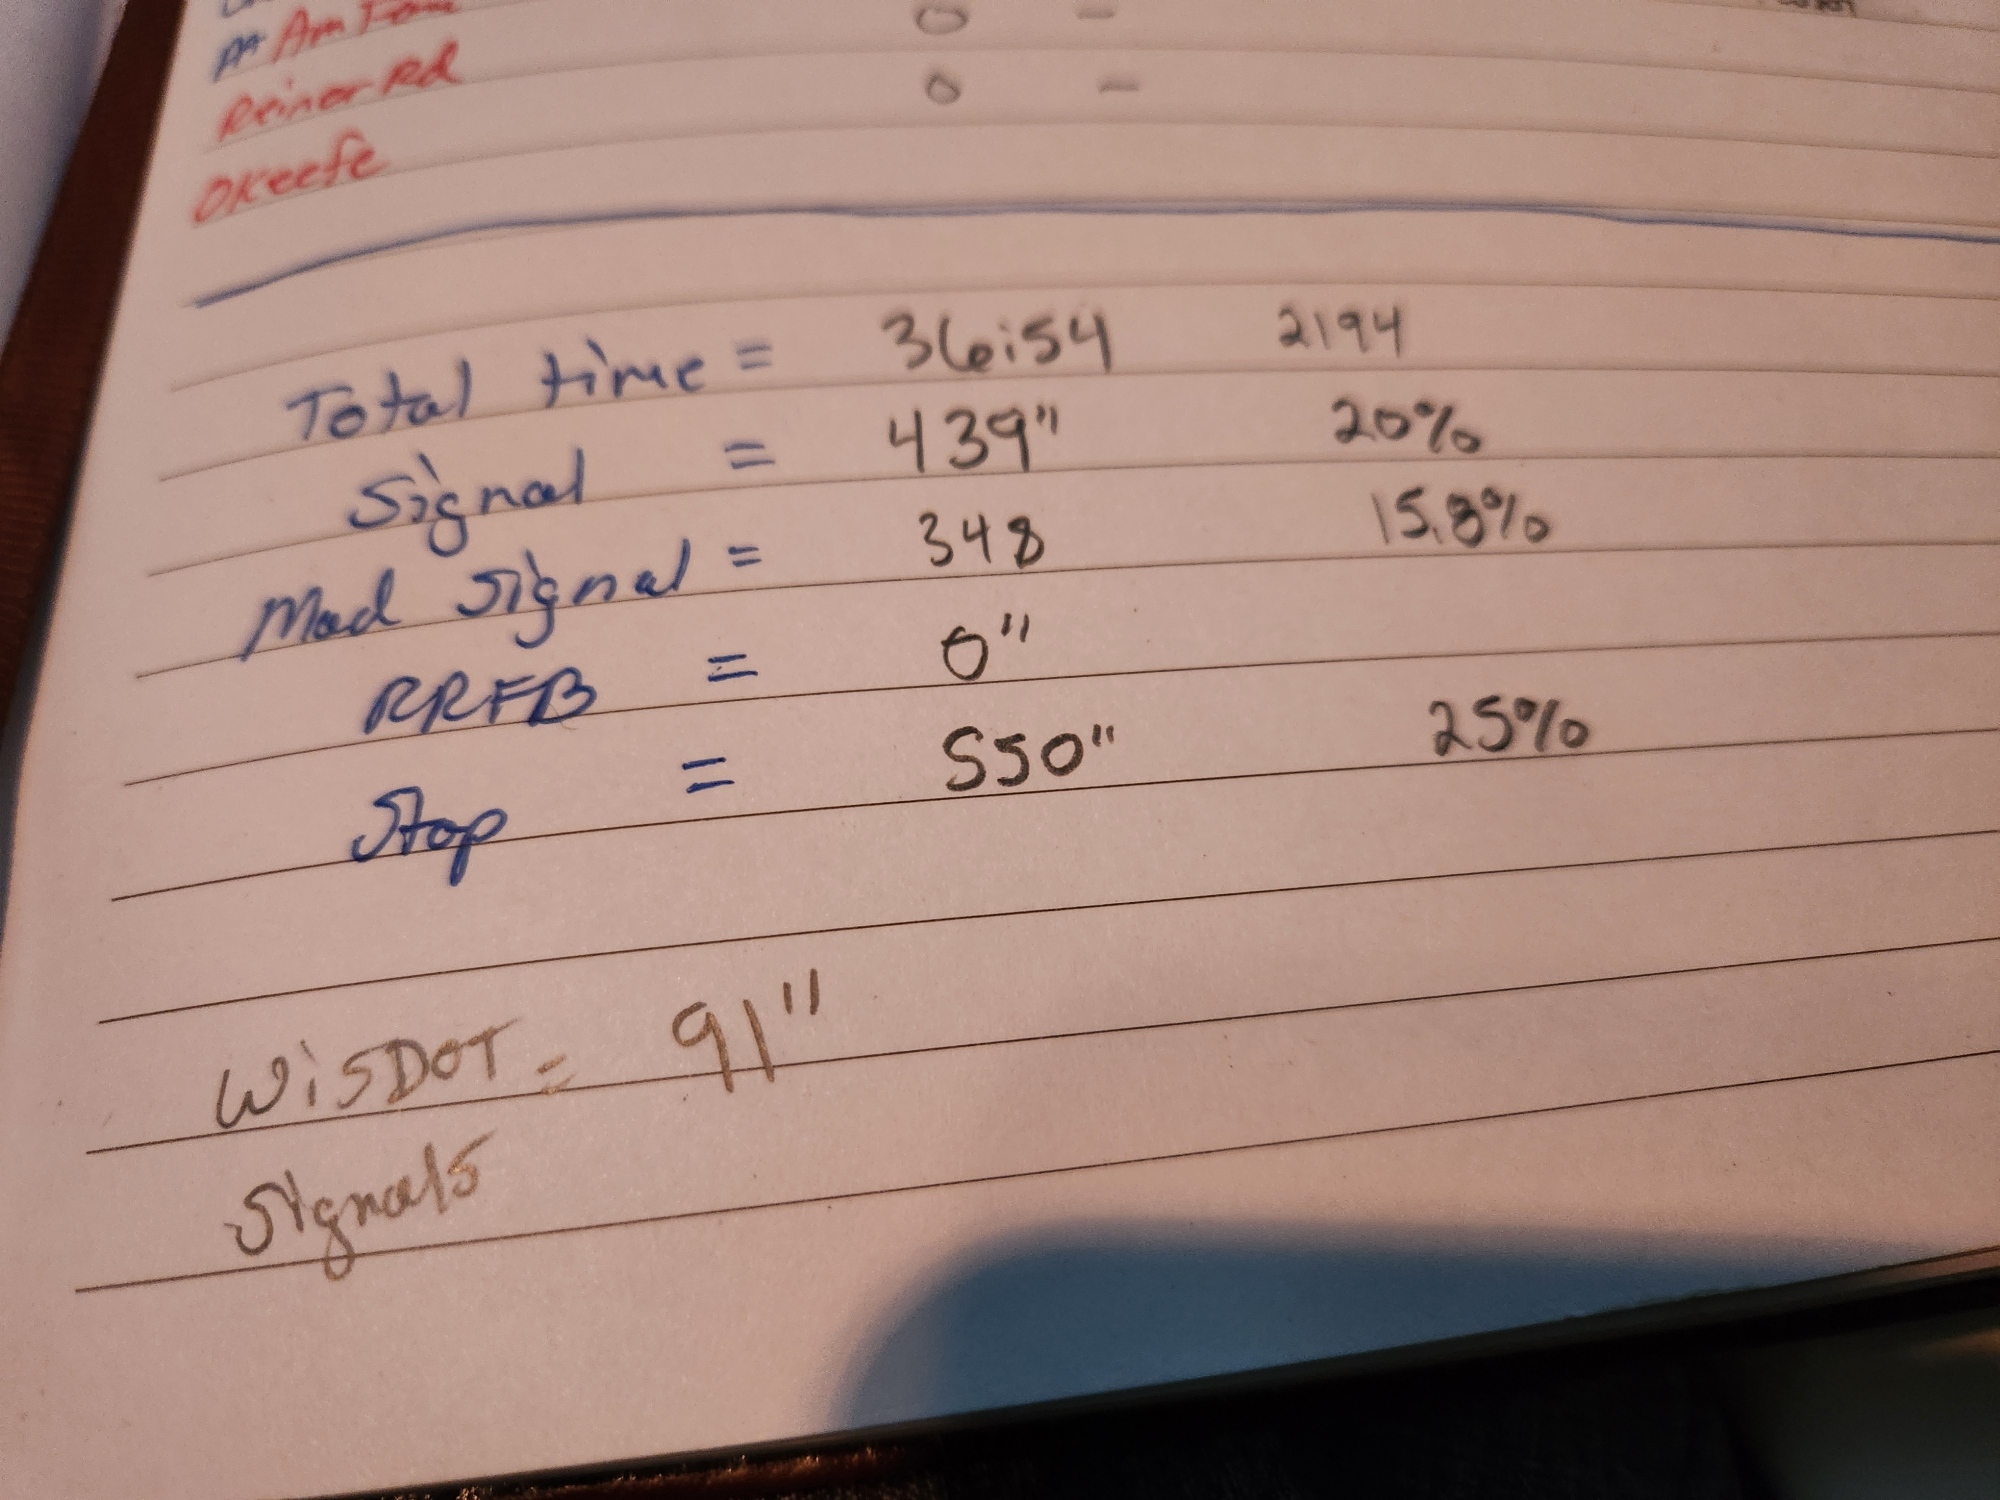 A+ Am Fam 0 -
Reiner Rd 0 -
OKeefe
Total time = 36:54 2194
Signal = 439" 20%
Mad Signal = 348 15.8%
RRFB = 0"
Stop = 550" 25%
WiSDOT = 91"
Signals